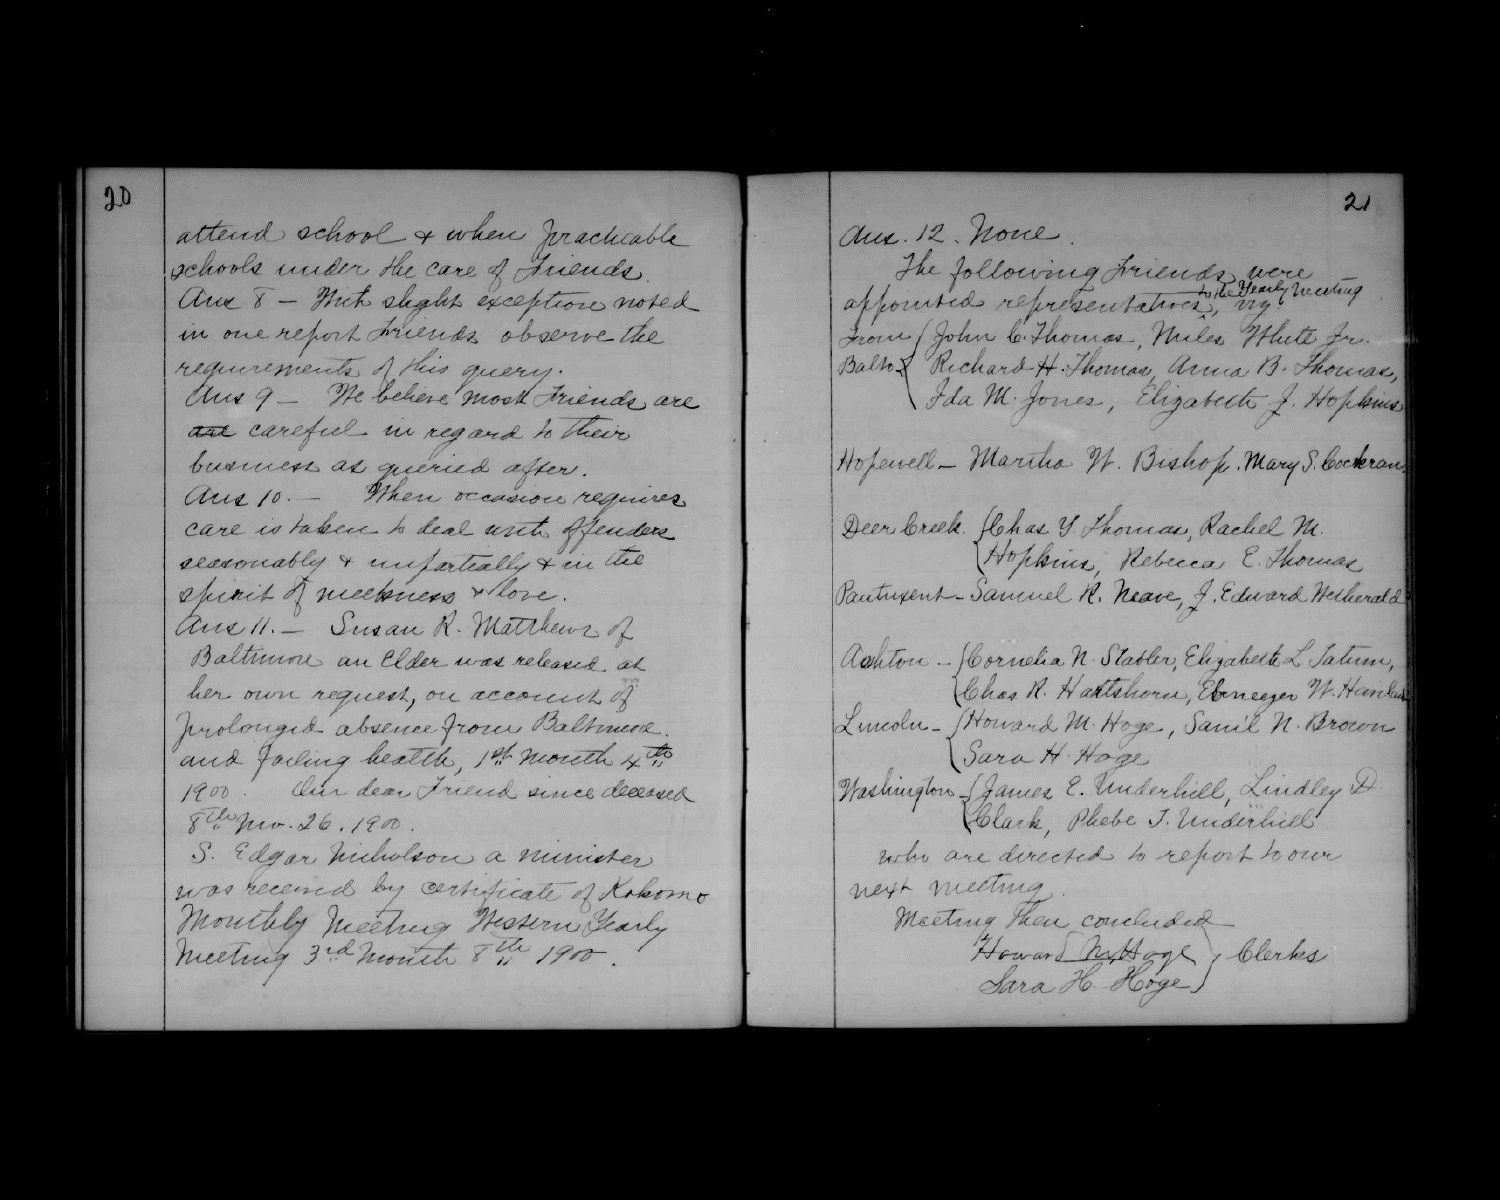 20
attend school & when practicable
schools under the care of Friends.
Ans 8 – With slight exception noted
in one report Friends observe the
requirements of this query.
Ans 9 – We believe most Friends are
are careful in regard to their
business as queried after.
Ans 10. – When occasion requires
care is taken to deal with offenders
seasonably & impartially & in the
spirit of meekness & love.
Ans 11. – Susan R. Matthews of
Baltimore an Elder was released at
her own request, on account of
prolonged absence from Baltimore.
and failing health, 1st Month 4th
1900. Our dear Friend since deceased
8th mo. 26. 1900.
S. Edgar Nicholson a minister
was received by certificate of Kokomo
Monthly Meeting Western Yearly
Meeting 3rd Month 8th 1900.
21
Ans. 12. None.
The following Friends were
to the Yearly Meeting
appointed representatives, viz:
From John C. Thomas, Miles White Jr.
Balto – Richard H. Thomas, Anna B. Thomas,
Ida M. Jones, Elizabeth J. Hopkins
Hopewell – Martha W. Bishop. Mary S. Cockran.
Deer Creek. Chas Y. Thomas, Rachel M.
Hopkins, Rebecca E. Thomas
Pautuxent – Samuel R. Neave, J. Edward Wetherald
Ashton – Cornelia N. Stabler, Elizabeth L Tatum,
Chas R. Hartshorn, Ebenezer W.
Lincoln – Howard M. Hoge, Sam'l N. Brown
Sara H. Hoge
Washington – James E. Underhill, Lindley D
Clark, Phebe T. Underhill
who are directed to report to our
next meeting.
Meeting then concluded
Howard M. Hoge Clerks
Sara H. Hoge